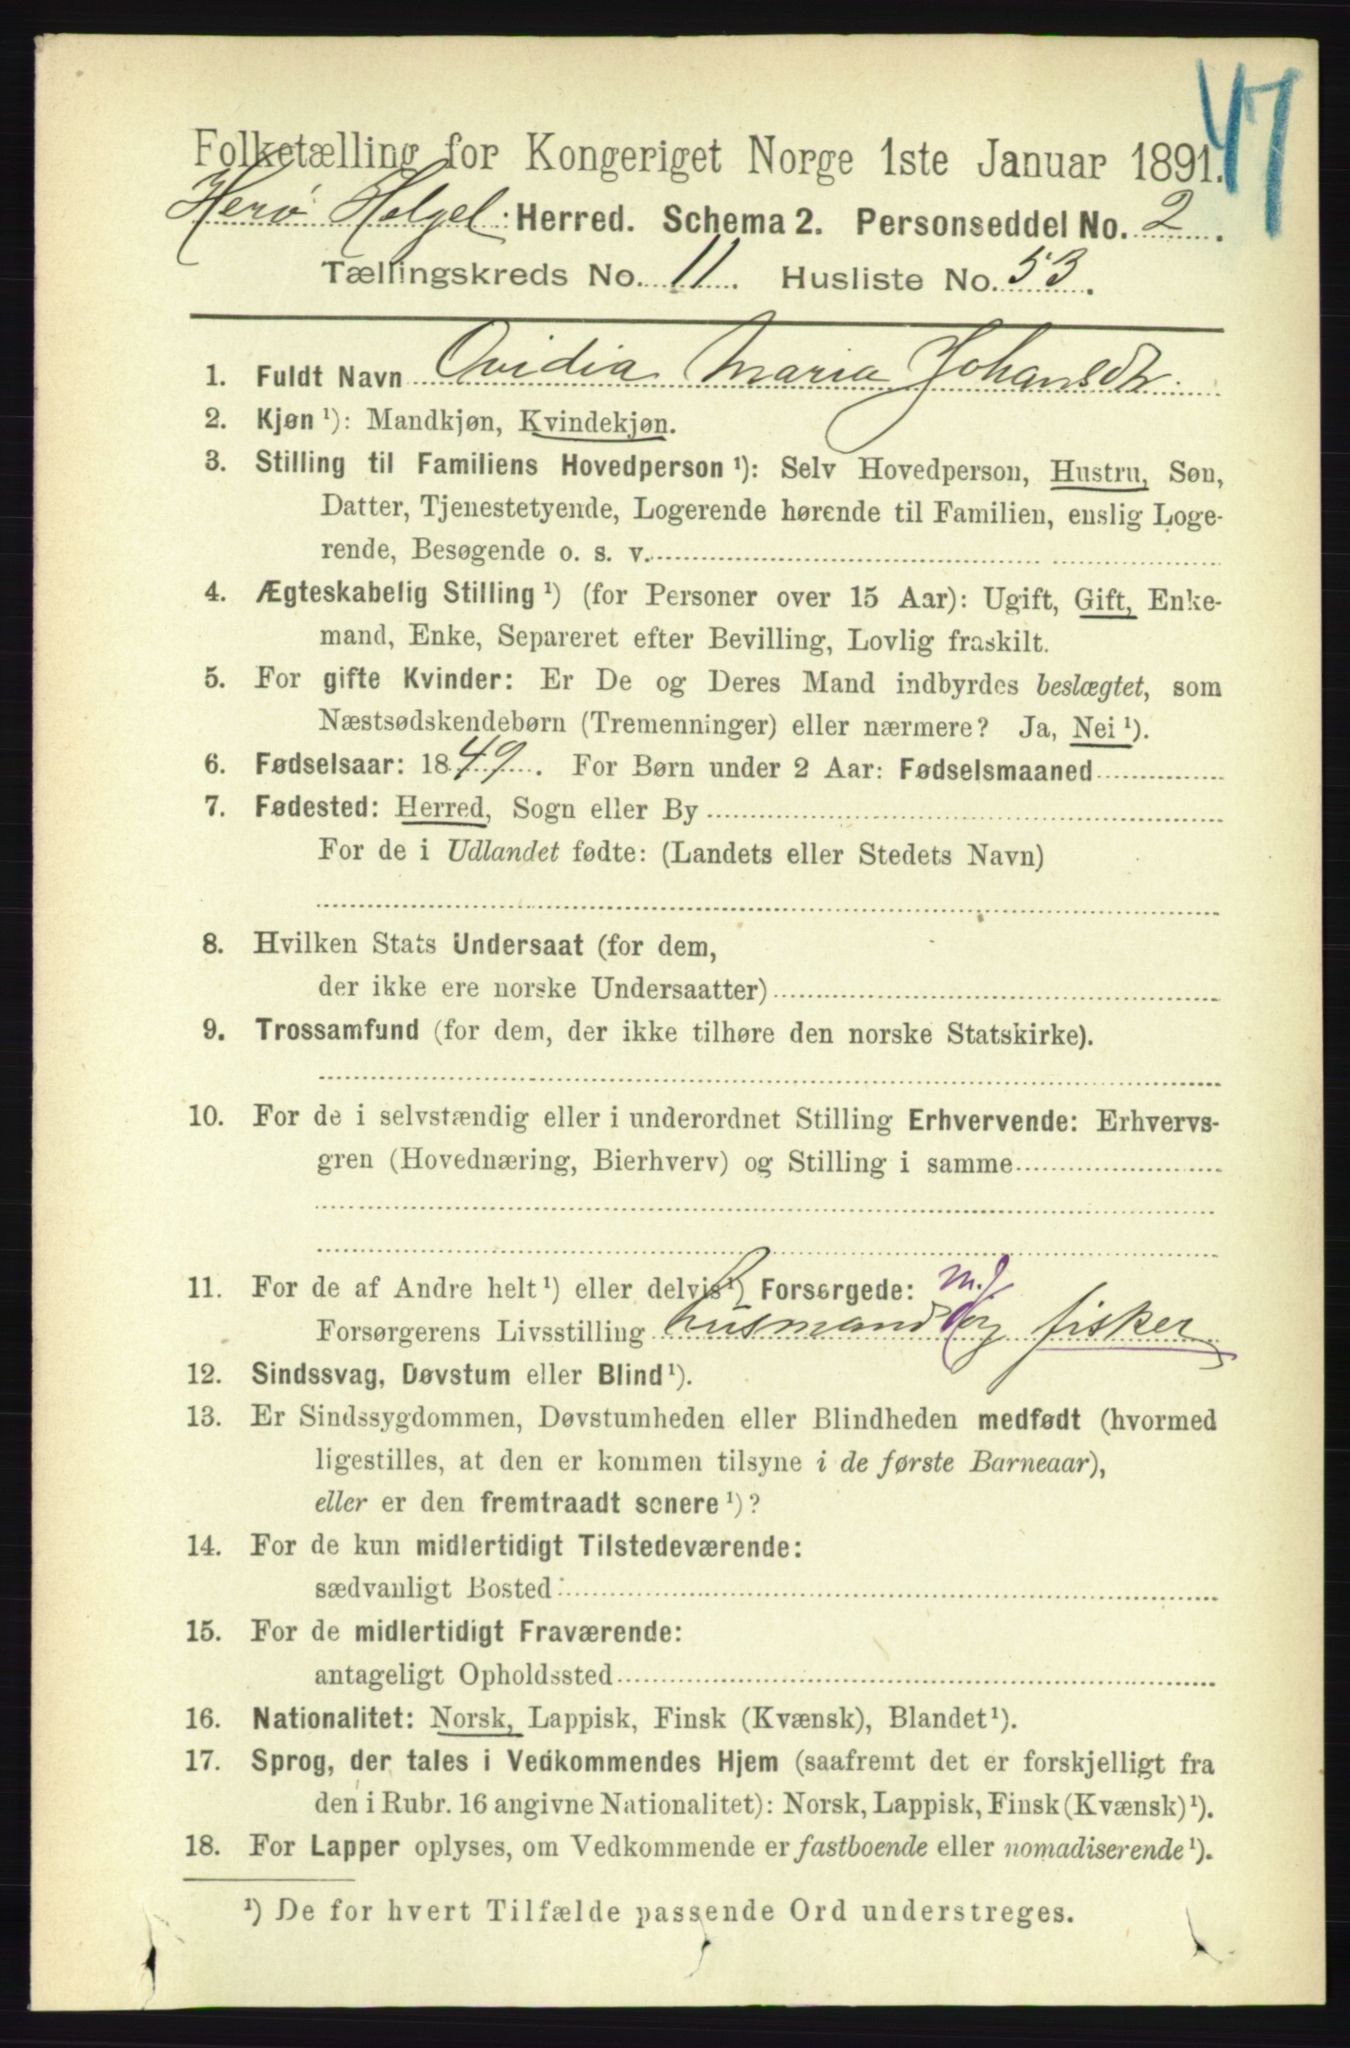 47
Folketælling for Kongeriget Norge 1ste Januar 1891.
Herø Helgel: Herred. Schema 2. Personseddel No. 2.
Tællingskreds No. 11. Husliste No. 53.
1. Fuldt Navn Ovidia Maria Johansdtr
2. Kjøn ¹): Mandkjøn, Kvindekjøn.
3. Stilling til Familiens Hovedperson ¹): Selv Hovedperson, Hustru, Søn,
Datter, Tjenestetyende, Logerende hørende til Familien, enslig Loge-
rende, Besøgende o. s. v.
4. Ægteskabelig Stilling ¹) (for Personer over 15 Aar): Ugift, Gift, Enke-
mand, Enke, Separeret efter Bevilling, Lovlig fraskilt.
5. For gifte Kvinder: Er De og Deres Mand indbyrdes beslægtet, som
Næstsødskendebørn (Tremenninger) eller nærmere? Ja, Nei ¹).
6. Fødselsaar: 1849. For Børn under 2 Aar: Fødselsmaaned
7. Fødested: Herred, Sogn eller By
For de i Udlandet fødte: (Landets eller Stedets Navn)
8. Hvilken Stats Undersaat (for dem,
der ikke ere norske Undersaatter)
9. Trossamfund (for dem, der ikke tilhøre den norske Statskirke).
10. For de i selvstændig eller i underordnet Stilling Erhvervende: Erhvervs-
gren (Hovednæring, Bierhverv) og Stilling i samme
11. For de af Andre helt ¹) eller delvis ¹) Forsørgede: m.j.
Forsørgerens Livsstilling husmand og fisker
12. Sindssvag, Døvstum eller Blind ¹).
13. Er Sindssygdommen, Døvstumheden eller Blindheden medfødt (hvormed
ligestilles, at den er kommen tilsyne i de første Barneaar),
eller er den fremtraadt senere ¹)?
14. For de kun midlertidigt Tilstedeværende:
sædvanligt Bosted:
15. For de midlertidigt Fraværende:
antageligt Opholdssted
16. Nationalitet: Norsk, Lappisk, Finsk (Kvænsk), Blandet ¹).
17. Sprog, der tales i Vedkommendes Hjem (saafremt det er forskjelligt fra
den i Rubr. 16 angivne Nationalitet): Norsk, Lappisk, Finsk (Kvænsk) ¹).
18. For Lapper oplyses, om Vedkommende er fastboende eller nomadiserende ¹).
¹) De for hvert Tilfælde passende Ord understreges.